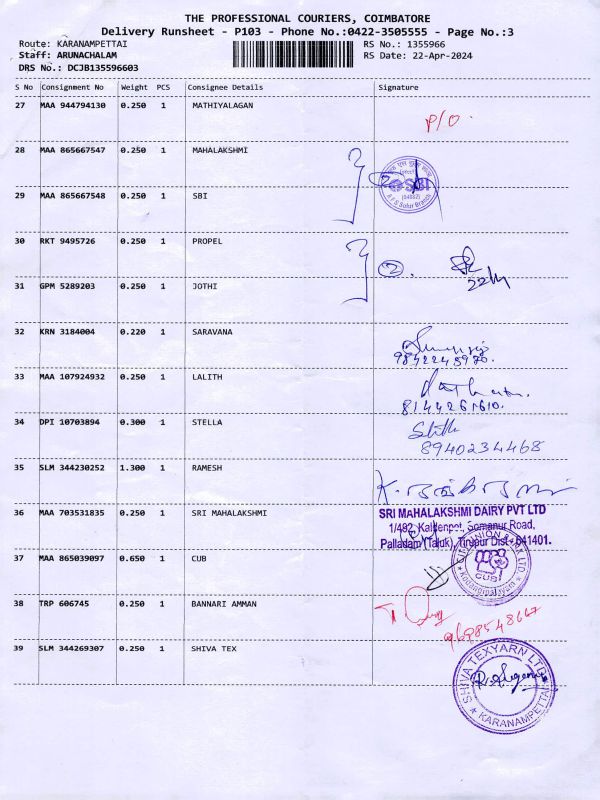 THE PROFESSIONAL COURIERS, COIMBATORE
Delivery Runsheet - P103 - Phone No.:0422-3505555 - Page No.:3
Route: KARANAMPETTAI RS No.: 1355966
Staff: ARUNACHALAM RS Date: 22-Apr-2024
DRS No.: DCJB135596603
S No Consignment No Weight PCS Consignee Details Signature
27 MAA 944794130 0.250 1 MATHIYALAGAN P/O.
28 MAA 865667547 0.250 1 MAHALAKSHMI
SBI
29 MAA 865667548 0.250 1 SBI
30 RKT 9495726 0.250 1 PROPEL
31 GPM 5289203 0.250 1 JOTHI
32 KRN 3184004 0.220 1 SARAVANA
33 MAA 107924932 0.250 1 LALITH
34 DPI 10703894 0.300 1 STELLA
8940234468
35 SLM 344230252 1.300 1 RAMESH
36 MAA 703531835 0.250 1 SRI MAHALAKSHMI SRI MAHALAKSHMI DAIRY PVT LTD
Somanur Road,
Palladam (Taluk), Tirupur Dist - 641401.
37 MAA 865039097 0.650 1 CUB CUB
38 TRP 606745 0.250 1 BANNARI AMMAN
39 SLM 344269307 0.250 1 SHIVA TEX SHIVA TEXYARN LTD
KARANAMPETTAI